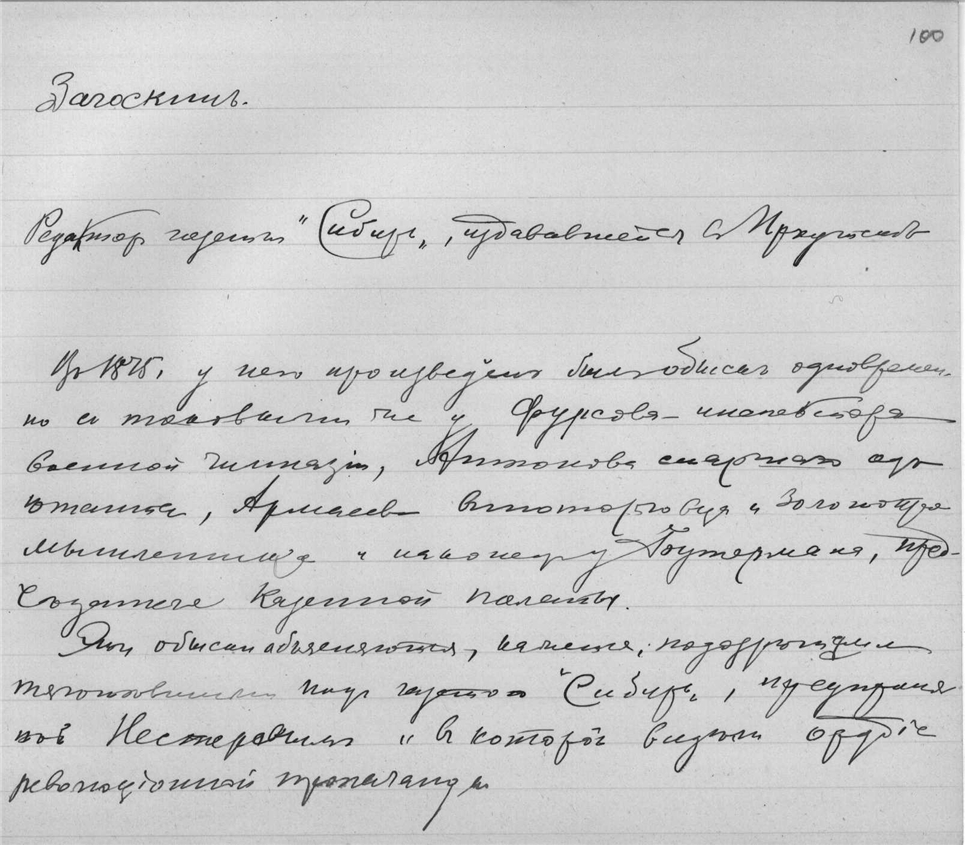 100
Загоскинъ.
Редакторъ газеты "Сибирь„, издававшейся въ Иркутскѣ
Въ 1875г. у него произведенъ былъ обыскъ одновремен-
но съ таковыми же у Фурсова – инспектора
военной гимназіи, Антонова старшаго адъ
ютанта, Армаева виноторговца и золотопро
мышленника и наконецъ у Гоутермана, пред-
сѣдателя Казенной палаты.
Эти обыски объясняются, кажется, подозрѣніями
тяготѣвшими надъ газетою "Сибирь„, предпринят
ой Нестеровымъ и въ которой видѣли орудіе
революціонной пропаганды